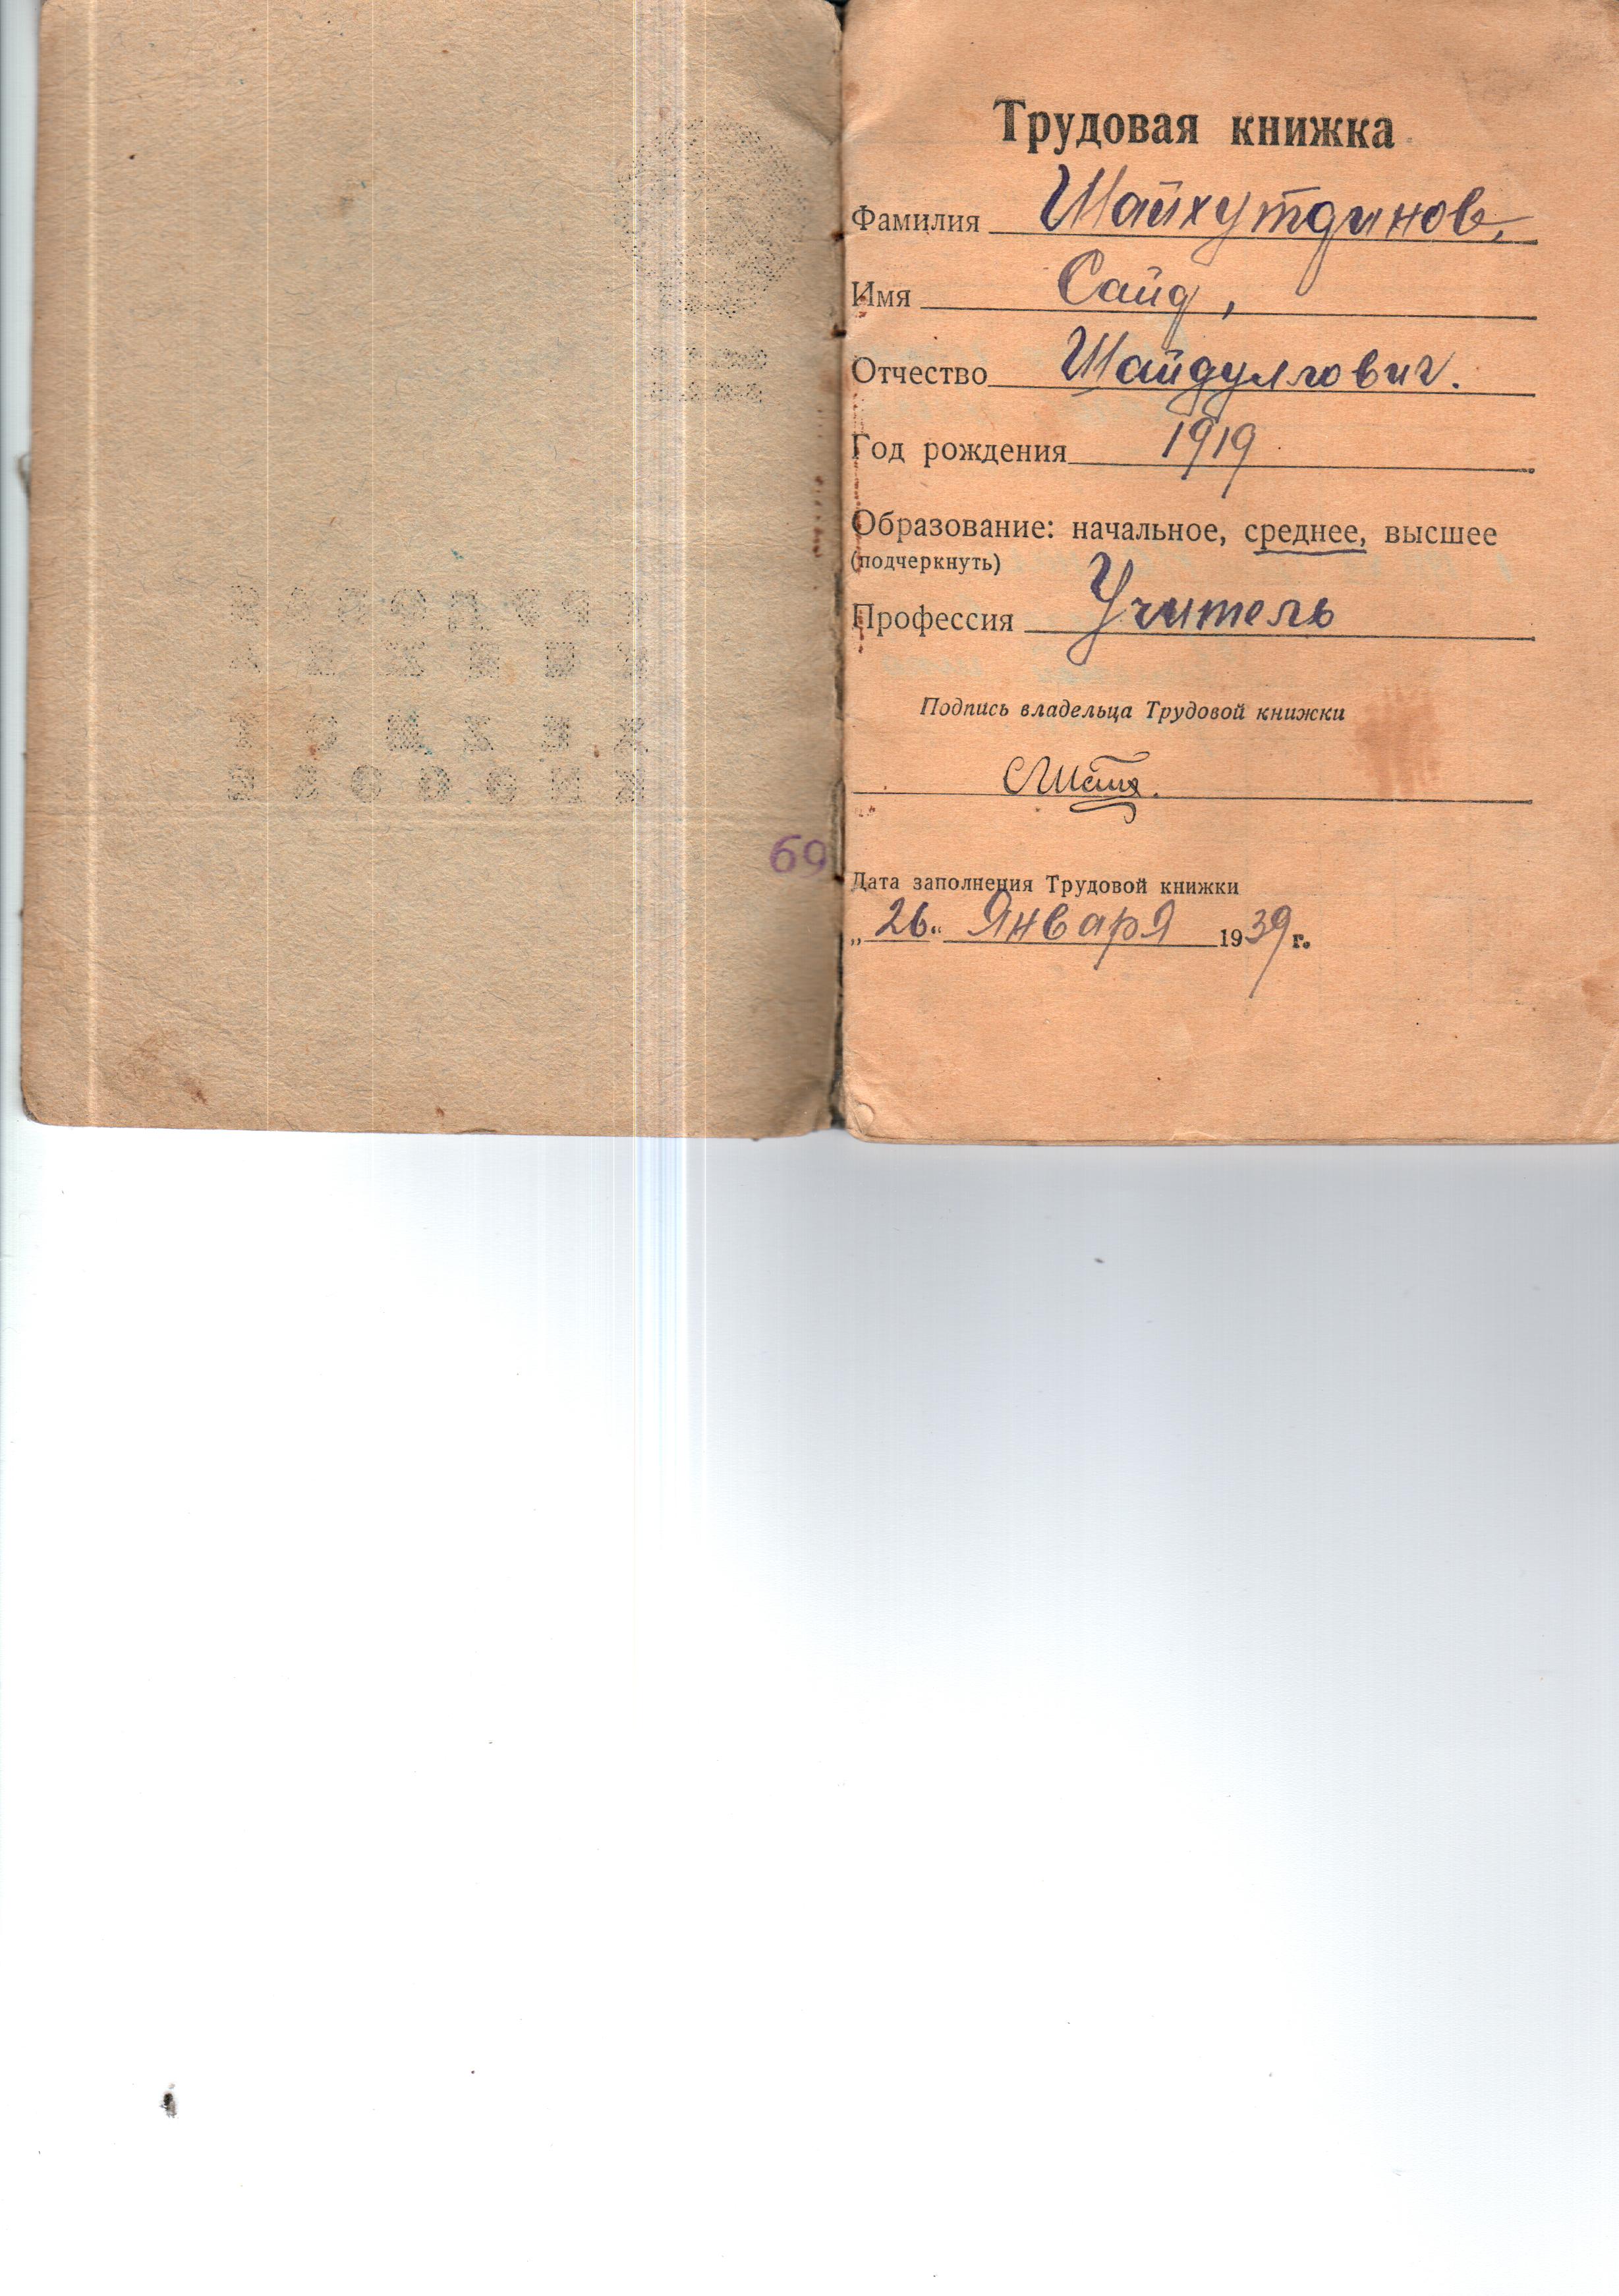 Трудовая книжка
Фамилия Шайхутдинов,
Имя Сайд,
Отчество Шайдуллович.
Год рождения 1919
Образование: начальное, среднее, высшее
(подчеркнуть)
Профессия Учитель
Подпись владельца Трудовой книжки
Дата заполнения Трудовой книжки
„26“ Января 1939 г.
69